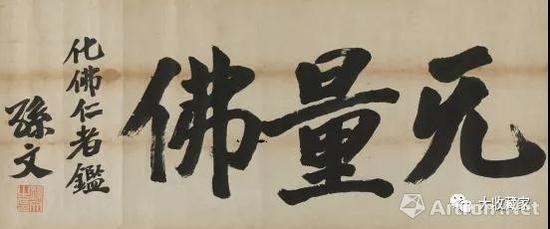 无量佛
化佛仁者鑑
孫文
大收藏家
Artron.Net